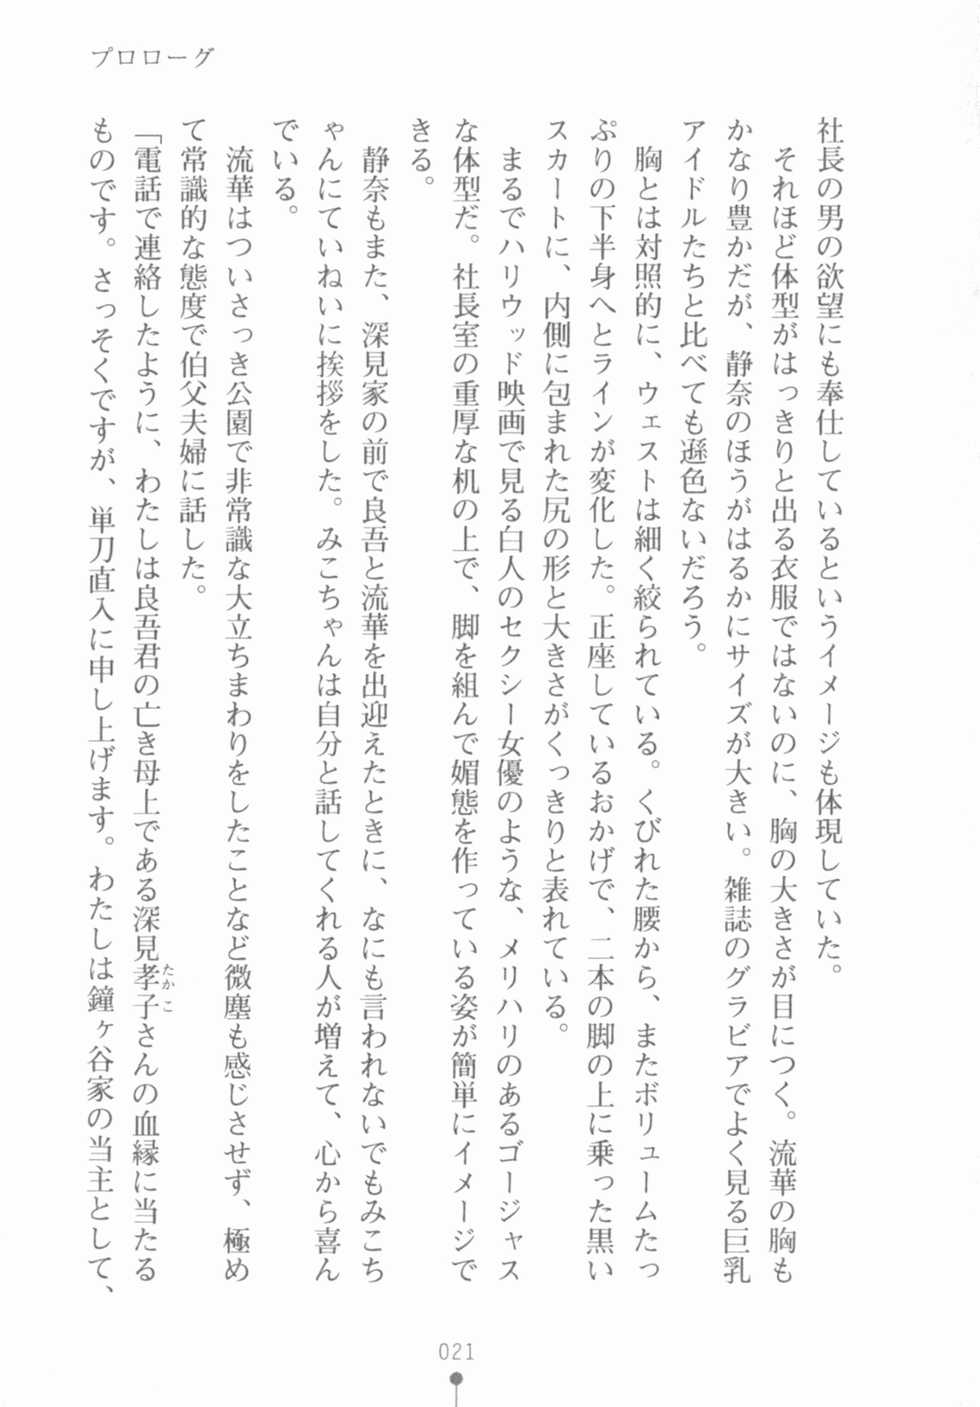 プロローグ
社長の男の欲望にも奉仕しているというイメージも体現していた。
それほど体型がはっきりと出る衣服ではないのに、胸の大きさが目につく。流華の胸も
かなり豊かだが、静奈のほうがはるかにサイズが大きい。雑誌のグラビアでよく見る巨乳
アイドルたちと比べても遜色ないだろう。
胸とは対照的に、ウェストは細く絞られている。くびれた腰から、またボリュームたっ
ぷりの下半身へとラインが変化した。正座しているおかげで、二本の脚の上に乗った黒い
スカートに、内側に包まれた尻の形と大きさがくっきりと表れている。
まるでハリウッド映画で見る白人のセクシー女優のような、メリハリのあるゴージャス
な体型だ。社長室の重厚な机の上で、脚を組んで媚態を作っている姿が簡単にイメージで
きる。
静奈もまた、深見家の前で良吾と流華を出迎えたときに、なにも言われないでもみこち
ゃんにていねいに挨拶をした。みこちゃんは自分と話してくれる人が増えて、心から喜ん
でいる。
流華はついさっき公園で非常識な大立ちまわりをしたことなど微塵も感じさせず、極め
て常識的な態度で伯父夫婦に話した。
「電話で連絡したように、わたしは良吾君の亡き母上である深見孝子さんの血縁に当たる
たかこ
ものです。さっそくですが、単刀直入に申し上げます。わたしは鐘ヶ谷家の当主として、
021